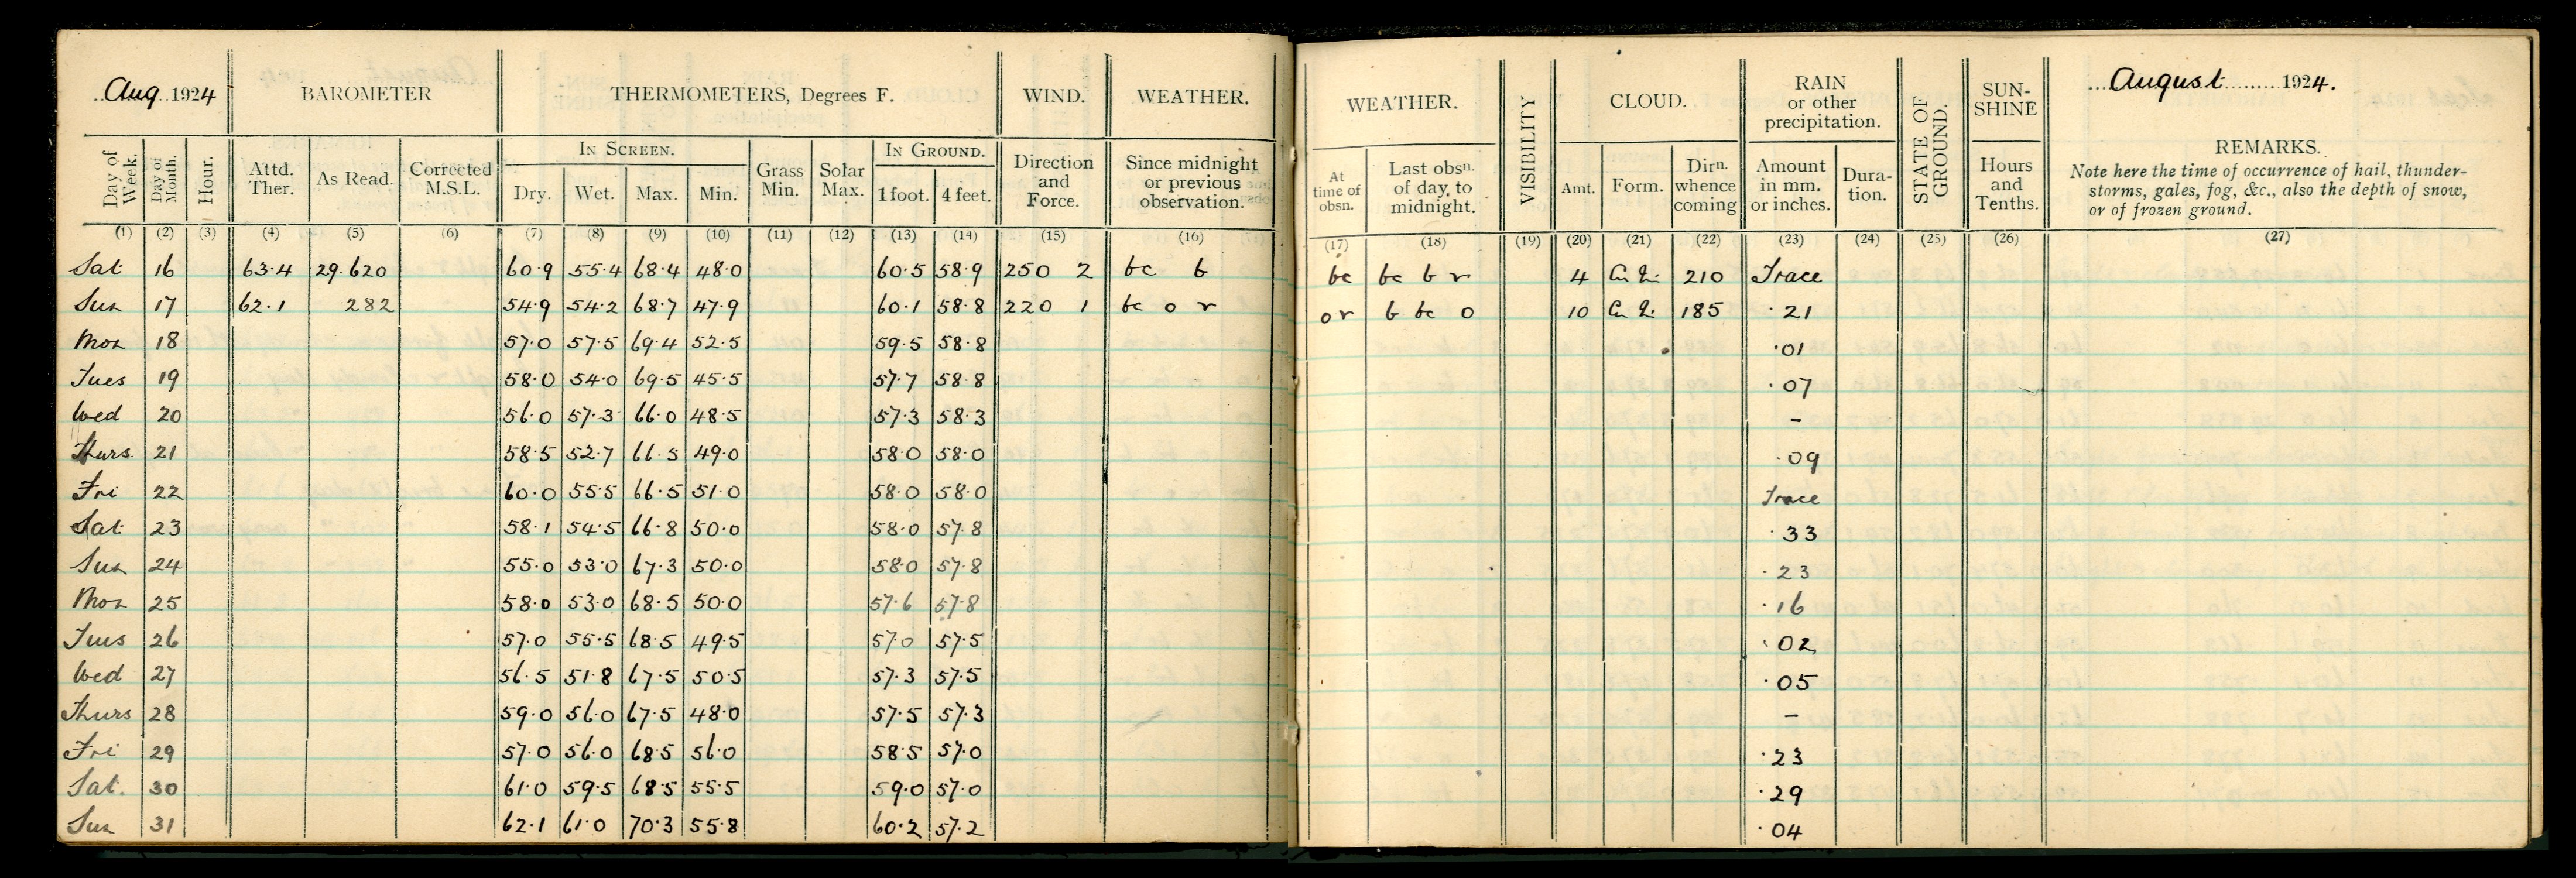 Aug 1924 BAROMETER THERMOMETERS, Degrees F. WIND. WEATHER.
Day of Week. Day of Month. Hour. Attd. Ther. As Read. Corrected M.S.L. IN SCREEN. Dry. Wet. Max. Min. Grass Min. Solar Max. IN GROUND. 1 foot. 4 feet. Direction and Force. Since midnight or previous observation.
(1) (2) (3) (4) (5) (6) (7) (8) (9) (10) (11) (12) (13) (14) (15) (16)
Sat 16 63.4 29.620 60.9 55.4 68.4 48.0 60.5 58.9 250 2 bc b
Sun 17 62.1 282 54.9 54.2 68.7 47.9 60.1 58.8 220 1 bc o r
Mon 18 57.0 57.5 69.4 52.5 59.5 58.8
Tues 19 58.0 54.0 69.5 45.5 57.7 58.8
Wed 20 56.0 57.3 66.0 48.5 57.3 58.3
Thurs. 21 58.5 52.7 66.5 49.0 58.0 58.0
Fri 22 60.0 55.5 66.5 51.0 58.0 58.0
Sat 23 58.1 54.5 66.8 50.0 58.0 57.8
Sun 24 55.0 53.0 67.3 50.0 58.0 57.8
Mon 25 58.0 53.0 68.5 50.0 57.6 57.8
Tues 26 57.0 55.5 68.5 49.5 57.0 57.5
Wed 27 56.5 51.8 67.5 50.5 57.3 57.5
Thurs 28 59.0 56.0 67.5 48.0 57.5 57.3
Fri 29 57.0 56.0 68.5 56.0 58.5 57.0
Sat. 30 61.0 59.5 68.5 55.5 59.0 57.0
Sun 31 62.1 61.0 70.3 55.8 60.2 57.2
WEATHER. VISIBILITY CLOUD. RAIN or other precipitation. STATE OF GROUND. SUN-SHINE August 1924.
At time of obsn. Last obsn. of day, to midnight. Amt. Form. Dirn. whence coming Amount in mm. or inches. Dura-tion. Hours and Tenths. REMARKS.
Note here the time of occurrence of hail, thunder-
storms, gales, fog, &c., also the depth of snow,
or of frozen ground.
(17) (18) (19) (20) (21) (22) (23) (24) (25) (26) (27)
bc bc b r 4 210 Trace
or b bc o 10 185 .21
.01
.07
-
.09
Trace
.33
.23
.16
.02
.05
-
.23
.29
.04